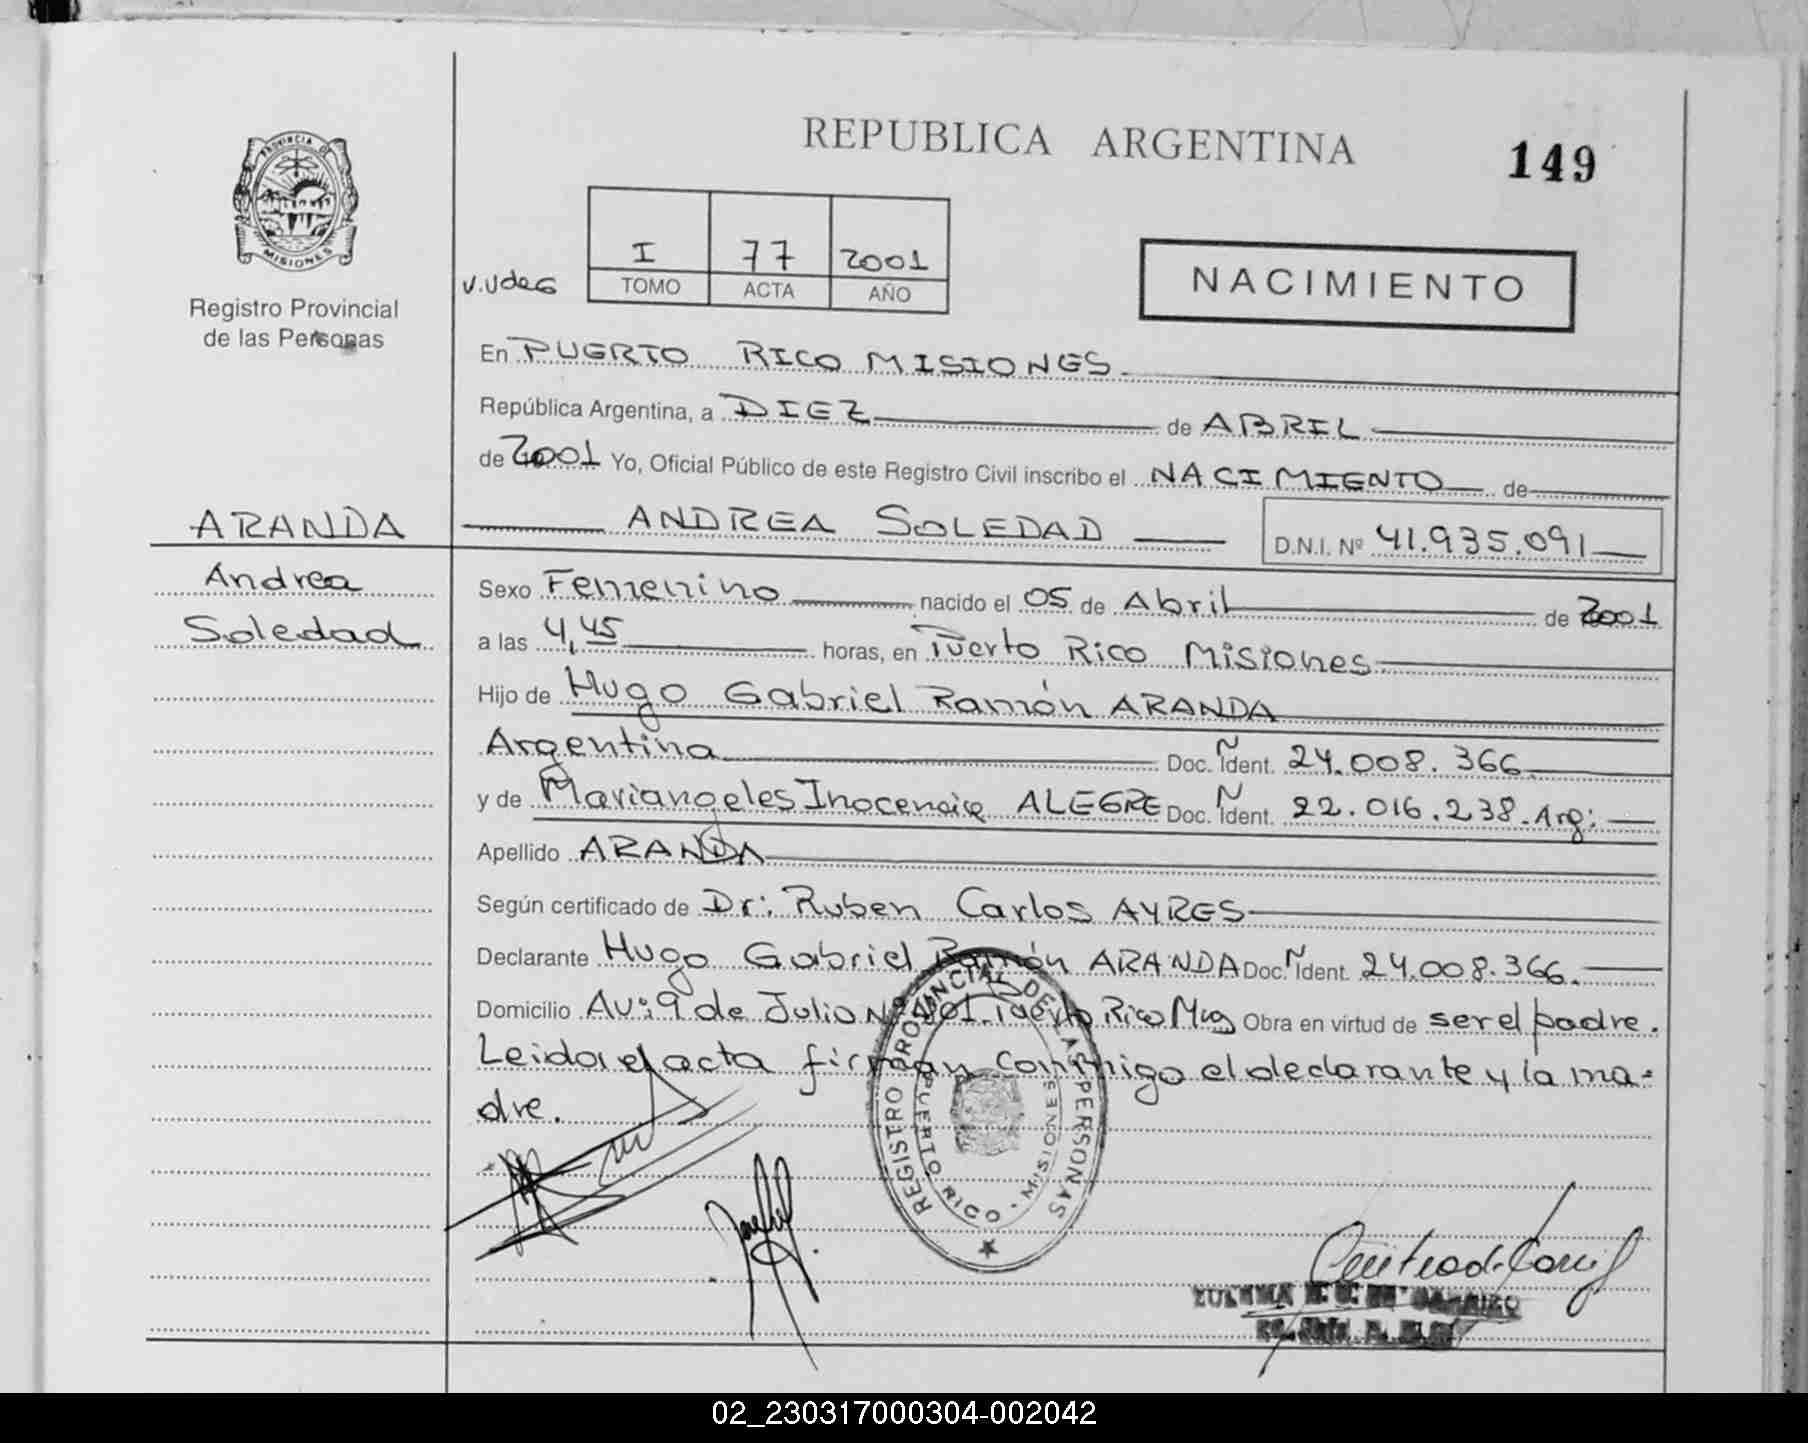 REPUBLICA ARGENTINA
149
PROVINCIA DE
MISIONES
Registro Provincial
de las Personas
I 77 2001
TOMO ACTA AÑO
NACIMIENTO
En PUERTO RICO MISIONES
República Argentina, a DIEZ de ABRIL
de 2001 Yo, Oficial Público de este Registro Civil inscribo el NACIMIENTO de
ARANDA
Andrea
Soledad
ANDREA SOLEDAD D.N.I. Nº 41.935.091
Sexo Femenino nacido el 05 de Abril de 2001
a las 4,45 horas, en Puerto Rico Misiones
Hijo de Hugo Gabriel Ramón ARANDA
Argentina Doc. Ident. 24.008.366
y de Mariangeles Inocencia ALEGRE Doc. Ident. 22.016.238. Arg:
Apellido ARANDA
Según certificado de Dr: Ruben Carlos AYRES
Declarante Hugo Gabriel Ramón ARANDA Doc. Ident. 24.008.366.
Domicilio Av: 9 de Julio Nº Puerto Rico Mnes Obra en virtud de ser el padre.
Leida el acta firman conmigo el declarante y la ma-
dre.
REGISTRO PROVINCIAL DE LAS PERSONAS
PUERTO RICO - MISIONES
02_230317000304-002042